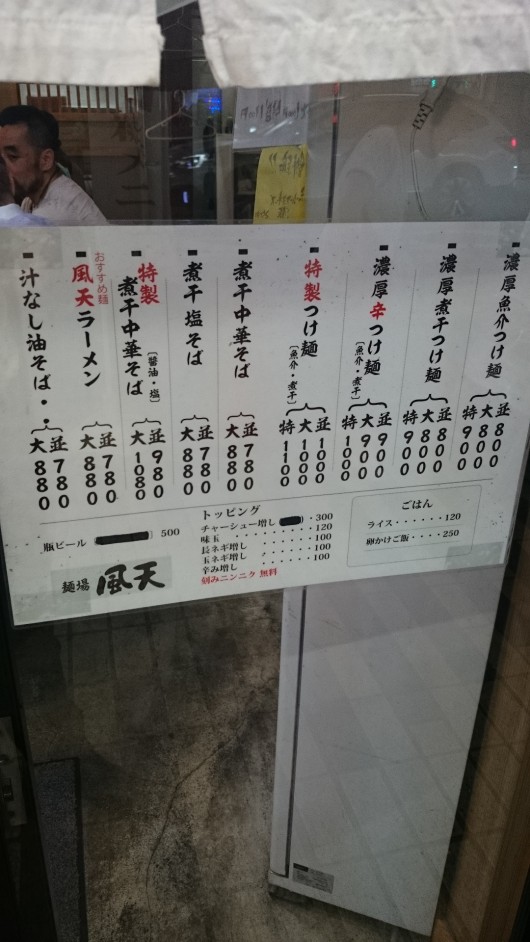 濃厚魚介つけ麺
並 800
大 800
特 900
濃厚煮干つけ麺
並 800
大 800
特 900
濃厚辛つけ麺
(魚介・煮干)
並 900
大 900
特 1000
特製つけ麺
(魚介・煮干)
並 1000
大 1000
特 1100
煮干中華そば
並 780
大 880
煮干塩そば
並 780
大 880
特製煮干中華そば
(醤油・塩)
並 980
大 1080
おすすめ麺
風天ラーメン
並 780
大 880
汁なし油そば・・
並 780
大 880
瓶ビール 500
トッピング
チャーシュー増し ・300
味玉 ・・・・・・120
長ネギ増し ・・・・・100
玉ネギ増し ・・・・・100
辛み増し ・・・・・・100
刻みニンニク 無料
ごはん
ライス・・・・・・120
卵かけご飯・・・・・250
麺場 風天